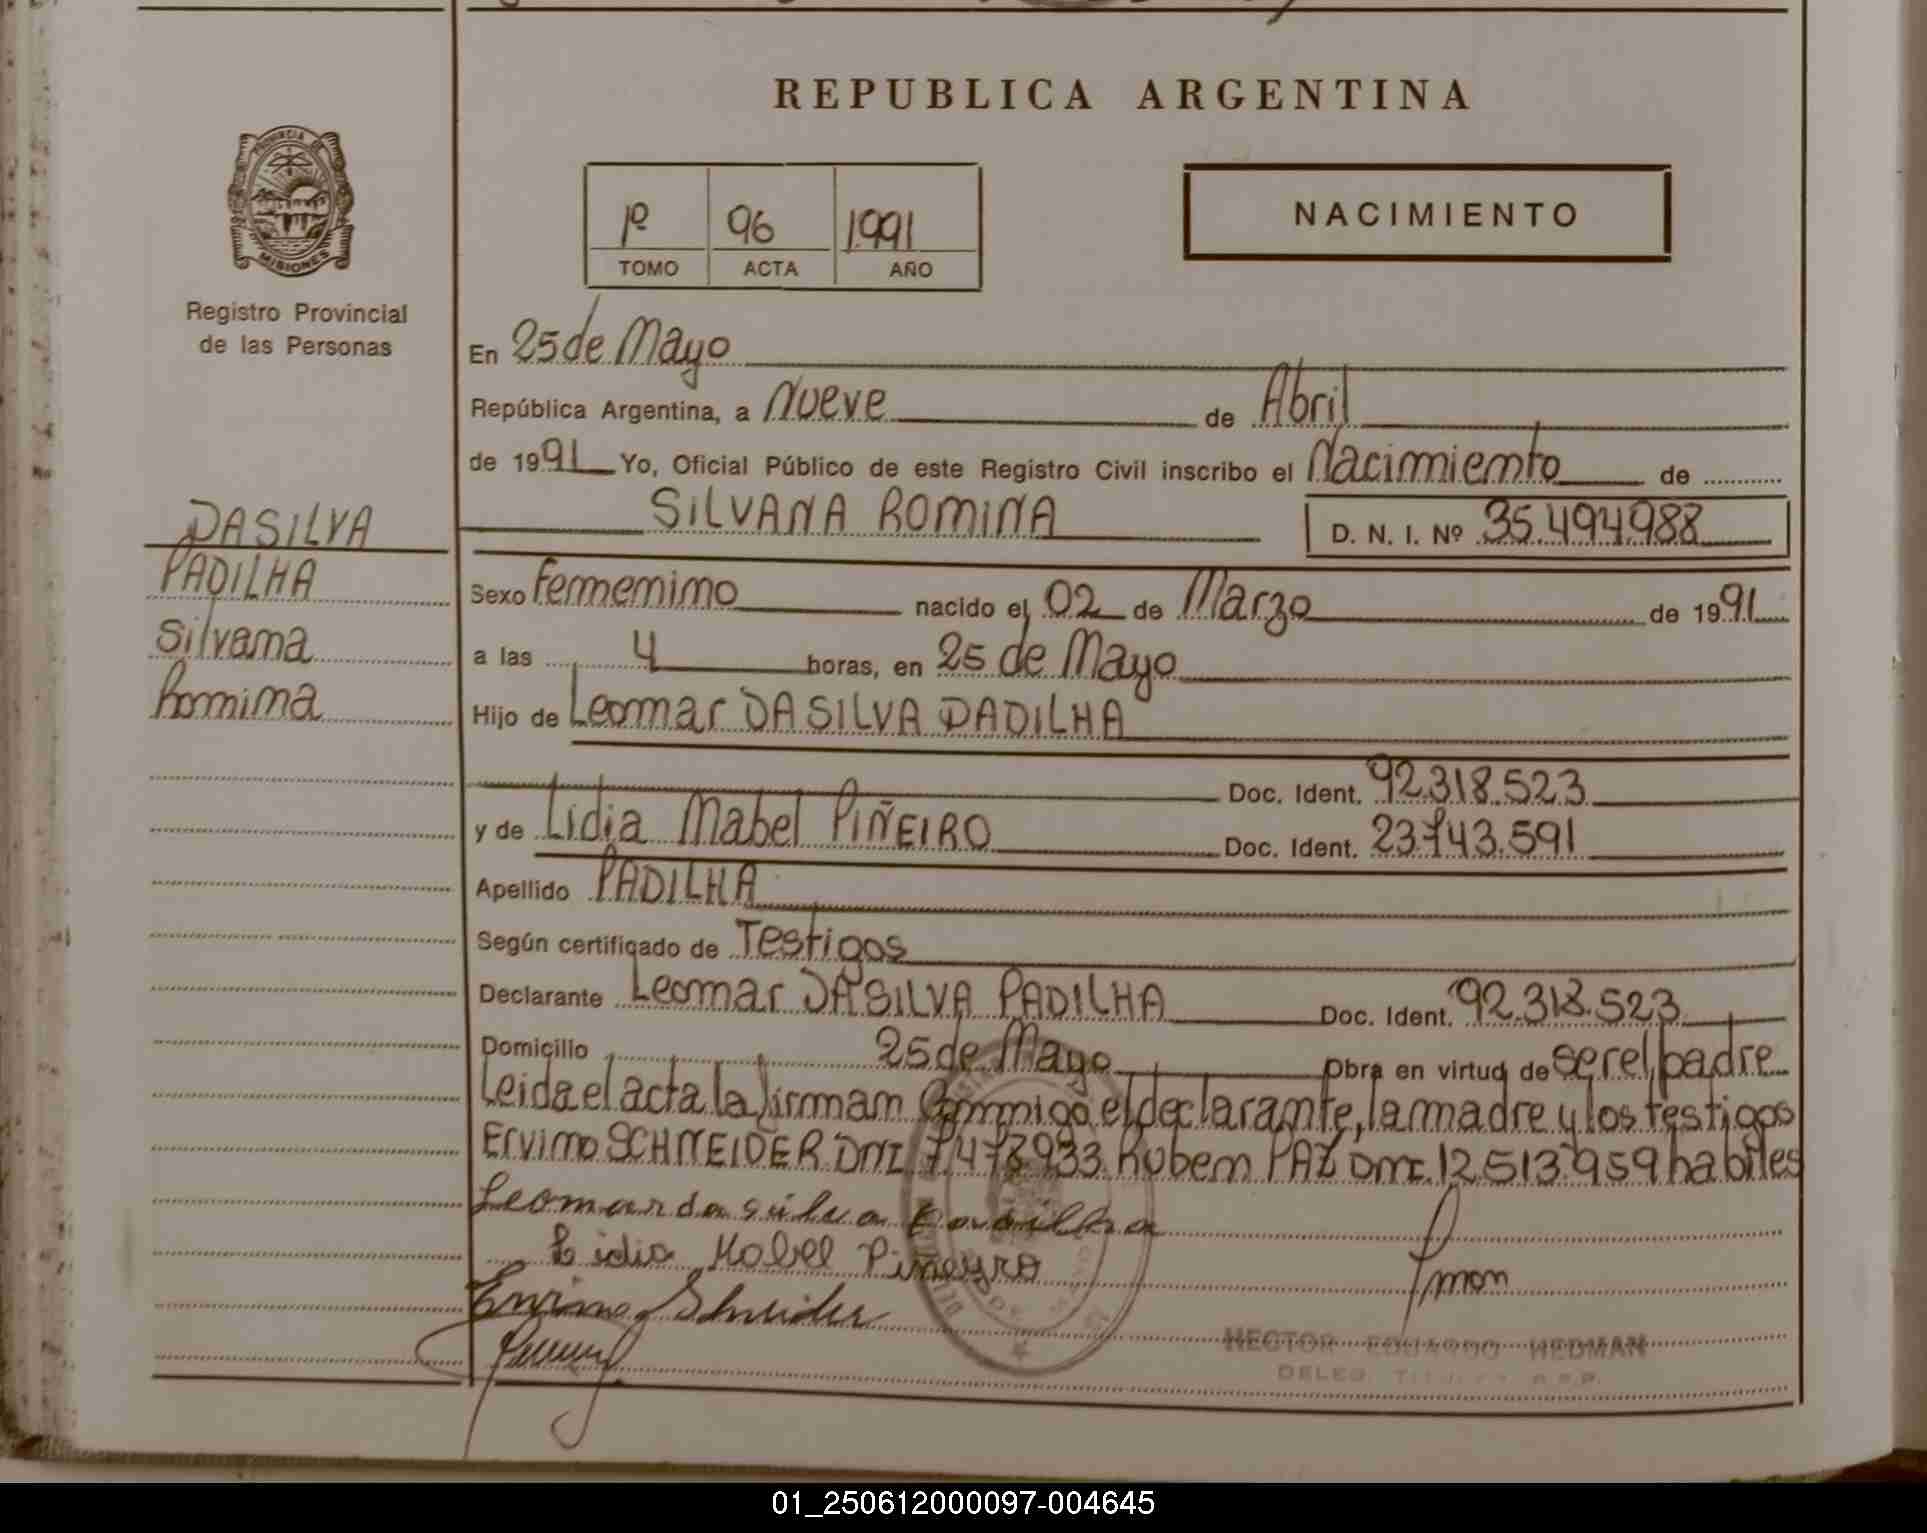 REPUBLICA ARGENTINA
PROVINCIA DE
MISIONES
Registro Provincial
de las Personas
1º 96 1991
TOMO ACTA AÑO
NACIMIENTO
En 25 de Mayo
República Argentina, a Nueve de Abril
de 1991 Yo, Oficial Público de este Registro Civil inscribo el Nacimiento de
SILVANA ROMINA D. N. I. Nº 35.494.988
DASILVA
PADILHA
Silvana
Romina
Sexo Femenino nacido el 02 de Marzo de 1991
a las 4 horas, en 25 de Mayo
Hijo de Leomar DASILVA PADILHA
Doc. Ident. 92.318.523
y de Lidia Mabel PIÑEIRO Doc. Ident. 23.743.591
Apellido PADILHA
Según certificado de Testigos
Declarante Leomar DASILVA PADILHA Doc. Ident. 92.318.523
Domicilio 25 de Mayo Obra en virtud de ser el padre
Leida el acta la firman Conmigo el declarante, la madre y los testigos
Ervino SCHNEIDER DNI 7.478933. Ruben PAZ DNI. 12.513.959 habiles
Leomar da silva Padilha
Lidia Mabel Piñeyro
Ervino Shneider
HECTOR EDUARDO HEDMAN
DELEG. TITULAR R.P.P.
01_250612000097-004645